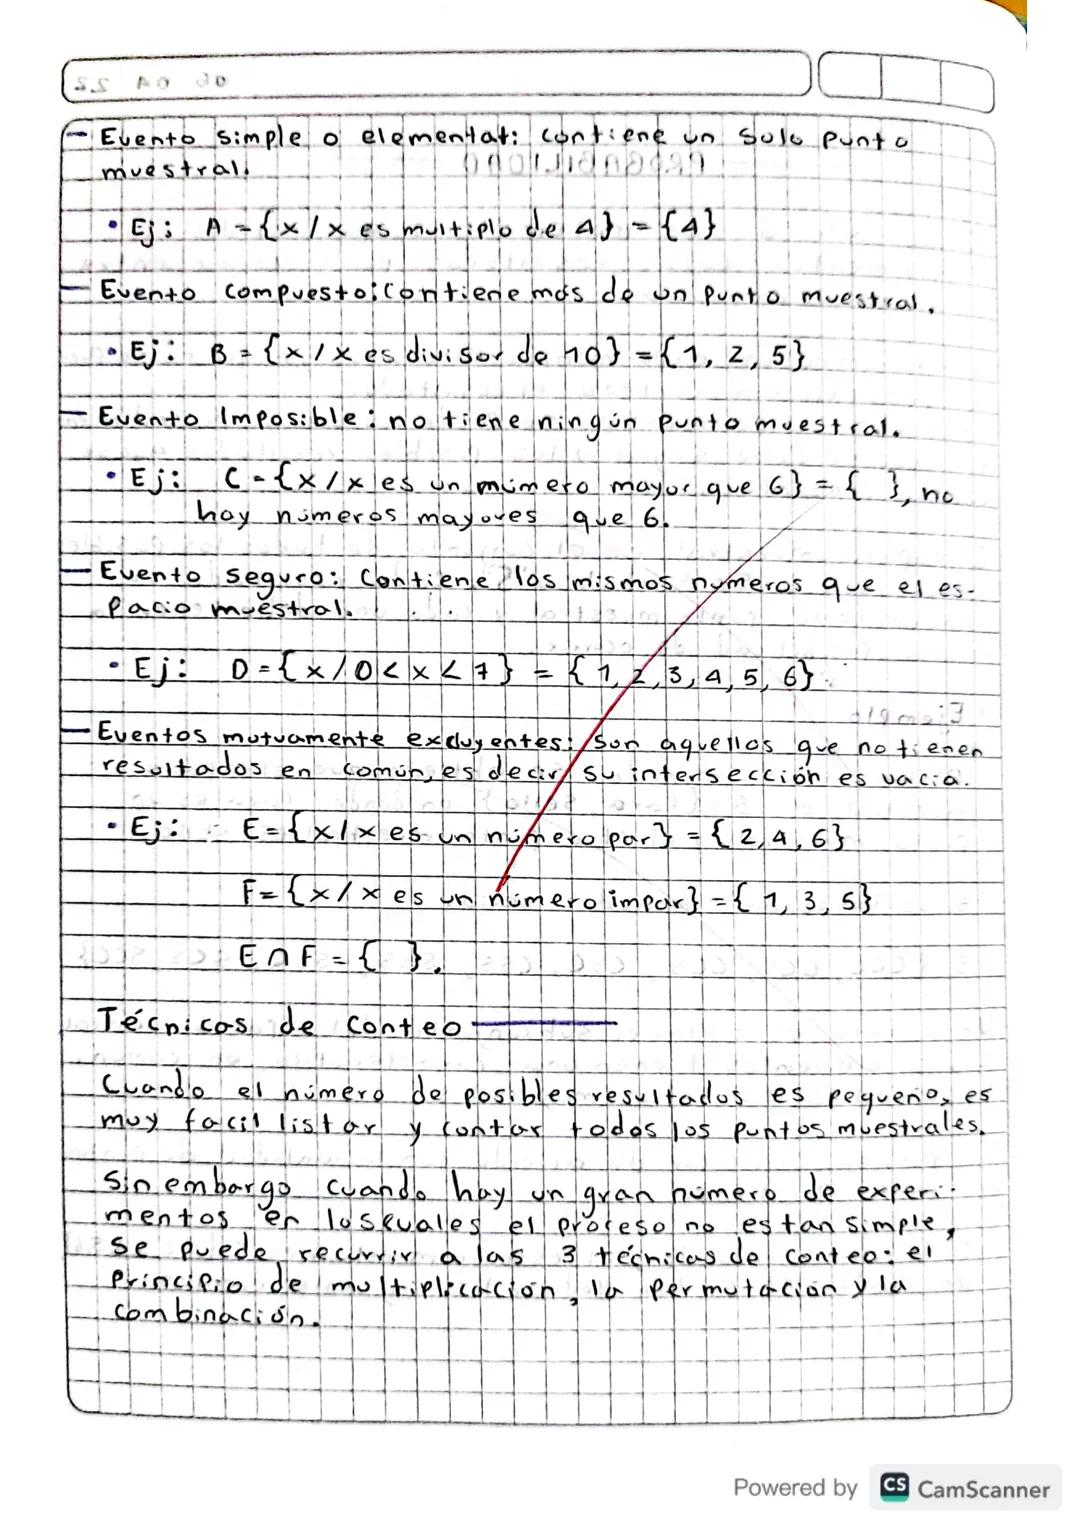 - Evento simple o elemental: contiene un solo punto
muestral.
• Ej: A = {x / x es multiplo de 4} = {4}
- Evento compuesto: contiene mas de un punto muestral.
• Ej: B = {x / x es divisor de 10} = {1, 2, 5}
- Evento Imposible: no tiene ningún punto muestral.
• Ej: C = {x / x es un número mayor que 6} = { }, no
hay números mayores que 6.
- Evento seguro: Contiene los mismos numeros que el es-
pacio muestral.
• Ej: D = {x / 0 < x < 7} = {1, 2, 3, 4, 5, 6}
- Eventos mutuamente excluyentes: son aquellos que no tienen
resultados en común, es decir su intersección es vacía.
• Ej: E = {x / x es un número par} = {2, 4, 6}
F = {x / x es un número impar} = {1, 3, 5}
E ∩ F = { }.
Técnicas de conteo
Cuando el número de posibles resultados es pequeño, es
muy facil listar y contar todos los puntos muestrales.
Sin embargo cuando hay un gran número de experi-
mentos en los cuales el proceso no es tan simple,
se puede recurrir a las 3 técnicas de conteo: el
principio de multiplicación, la permutación y la
combinación.
Powered by CS CamScanner